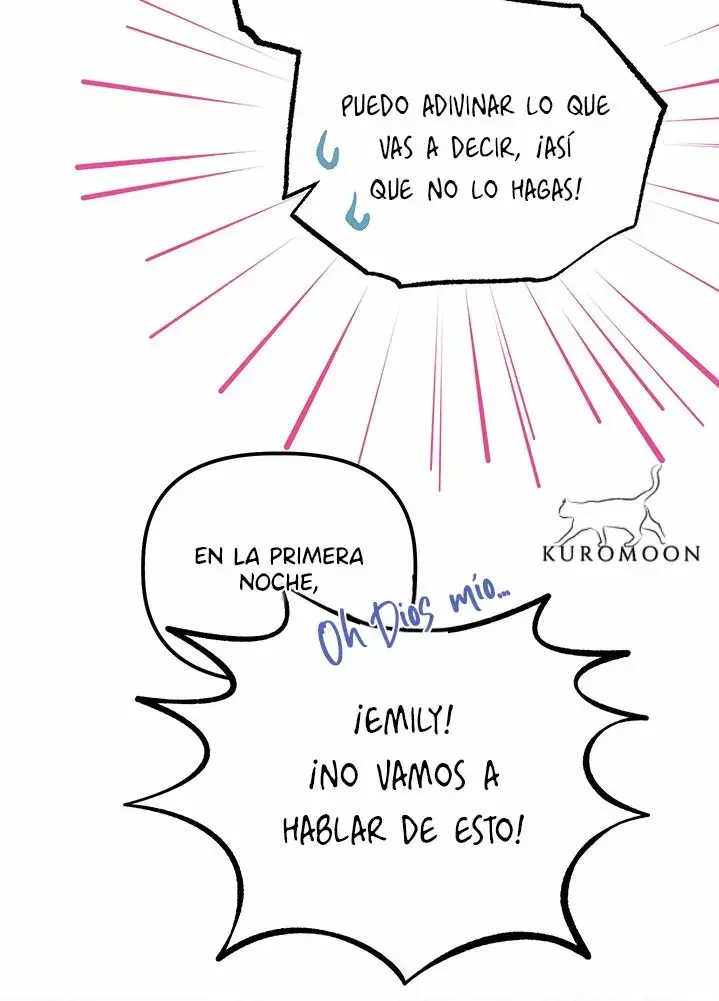 PUEDO ADIVINAR LO QUE
VAS A DECIR, ¡ASÍ
QUE NO LO HAGAS!
KUROMOON
EN LA PRIMERA
NOCHE,
Oh Dios mío...
¡EMILY!
¡NO VAMOS A
HABLAR DE ESTO!